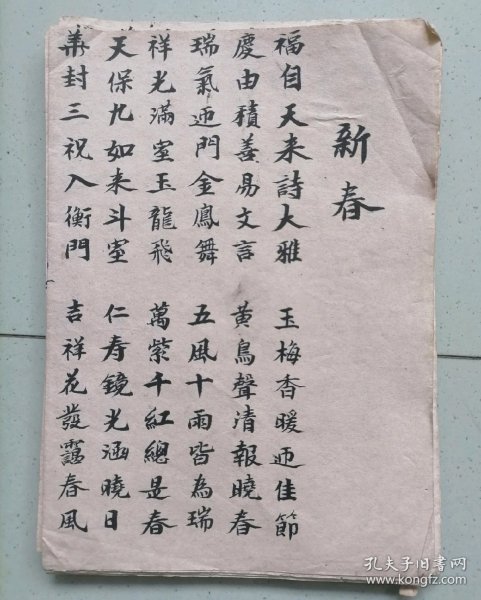 新春
福自天来詩大雅
慶由積善易文言
瑞氣迎門金鳳舞
祥光滿室玉龍飛
天保九如来斗室
華封三祝入衡門
玉梅香暖迎佳節
黄鳥聲清報曉春
五風十雨皆為瑞
萬紫千紅總是春
仁寿鏡光涵曉日
吉祥花發靄春風
孔夫子旧书网
www.kongfz.com